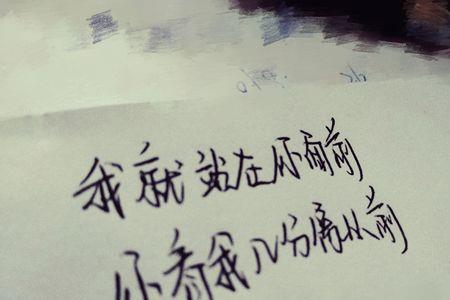 我就站在你面前
你看我几分像从前